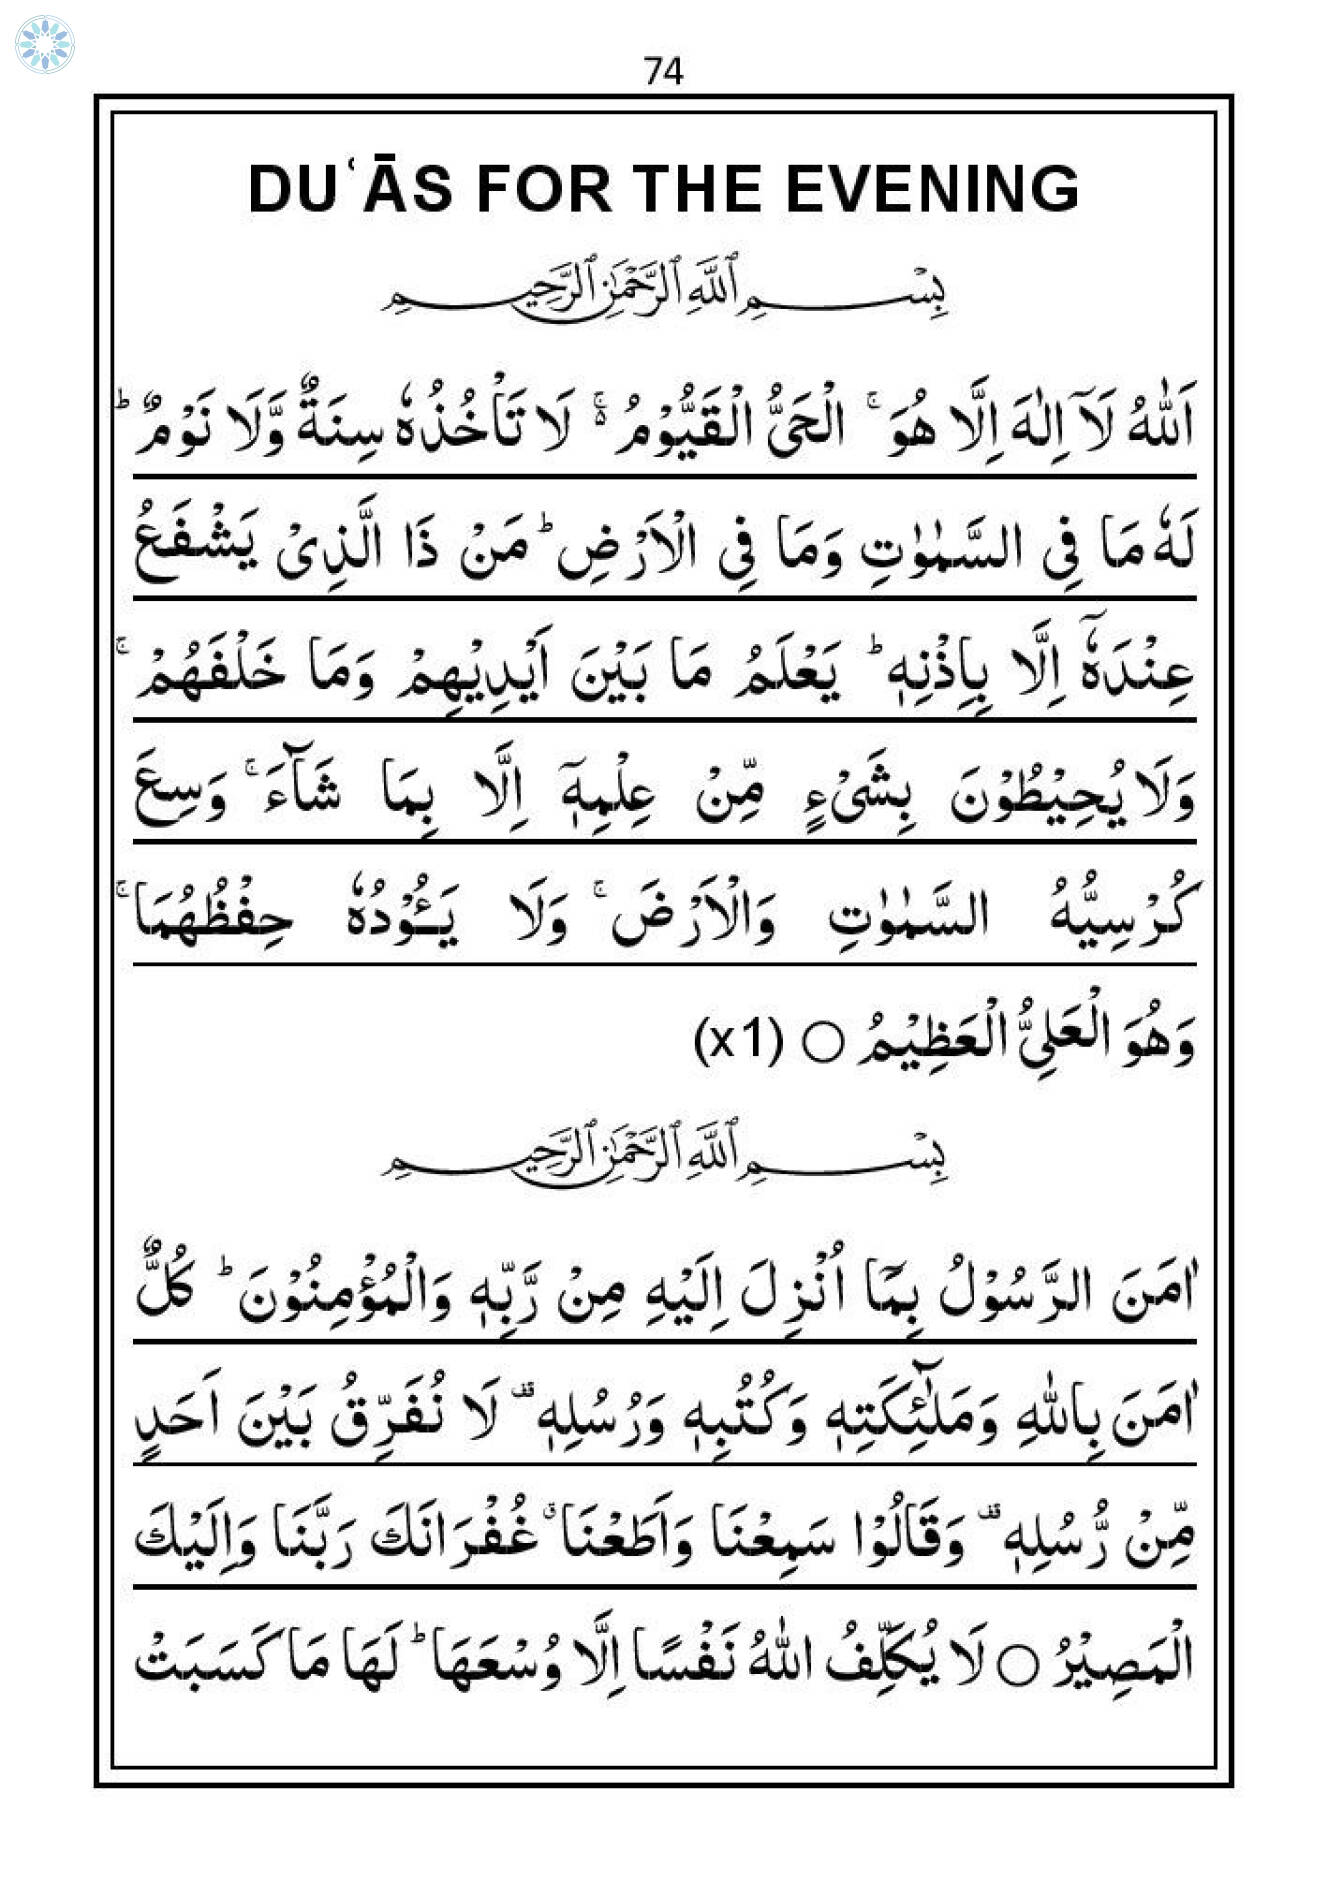 74
DUʿĀS FOR THE EVENING
بِسْمِ ٱللَّهِ ٱلرَّحْمَٰنِ ٱلرَّحِيمِ
اَللّٰهُ لَآ اِلٰهَ اِلَّا هُوَ ۚ الْحَىُّ الْقَيُّوْمُ ۚ۬ لَا تَاْخُذُهٗ سِنَةٌ وَّلَا نَوْمٌ ؕ
لَهٗ مَا فِى السَّمٰوٰتِ وَمَا فِى الْاَرْضِ ؕ مَنْ ذَا الَّذِىْ يَشْفَعُ
عِنْدَهٗۤ اِلَّا بِاِذْنِهٖ ؕ يَعْلَمُ مَا بَيْنَ اَيْدِيْهِمْ وَمَا خَلْفَهُمْ ۚ
وَلَا يُحِيْطُوْنَ بِشَىْءٍ مِّنْ عِلْمِهٖۤ اِلَّا بِمَا شَآءَ ۚ وَسِعَ
كُرْسِيُّهُ السَّمٰوٰتِ وَالْاَرْضَ ۚ وَلَا يَـُٔوْدُهٗ حِفْظُهُمَا ۚ
وَهُوَ الْعَلِىُّ الْعَظِيْمُ ○ (x1)
بِسْمِ ٱللَّهِ ٱلرَّحْمَٰنِ ٱلرَّحِيمِ
اٰمَنَ الرَّسُوْلُ بِمَآ اُنْزِلَ اِلَيْهِ مِنْ رَّبِّهٖ وَالْمُؤْمِنُوْنَ ؕ كُلٌّ
اٰمَنَ بِاللّٰهِ وَمَلٰٓئِكَتِهٖ وَكُتُبِهٖ وَرُسُلِهٖ ۟ لَا نُفَرِّقُ بَيْنَ اَحَدٍ
مِّنْ رُّسُلِهٖ ۟ وَقَالُوْا سَمِعْنَا وَاَطَعْنَا ۫ غُفْرَانَكَ رَبَّنَا وَاِلَيْكَ
الْمَصِيْرُ ○ لَا يُكَلِّفُ اللّٰهُ نَفْسًا اِلَّا وُسْعَهَا ؕ لَهَا مَا كَسَبَتْ